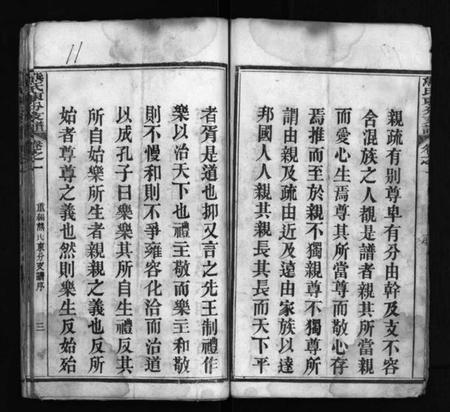 親疏有別尊卑有分由幹及支不容
含混族之人覩是譜者親其所當親
而愛心生焉尊其所當尊而敬心存
焉推而至於親不獨親尊不獨尊所
謂由親及疏由近及遠由家族以達
邦國人人親其親長其長而天下平
者胥是道也抑又言之先王制禮作
樂以治天下也禮主敬而樂主和敬
則不慢和則不爭雍容化洽而治道
以成孔子曰樂樂其所自生禮反其
所自始樂所生者親親之義也反所
始者尊尊之義也然則樂生反始殆
氏東分支譜
卷之一
重編
氏東分支譜序
三
11